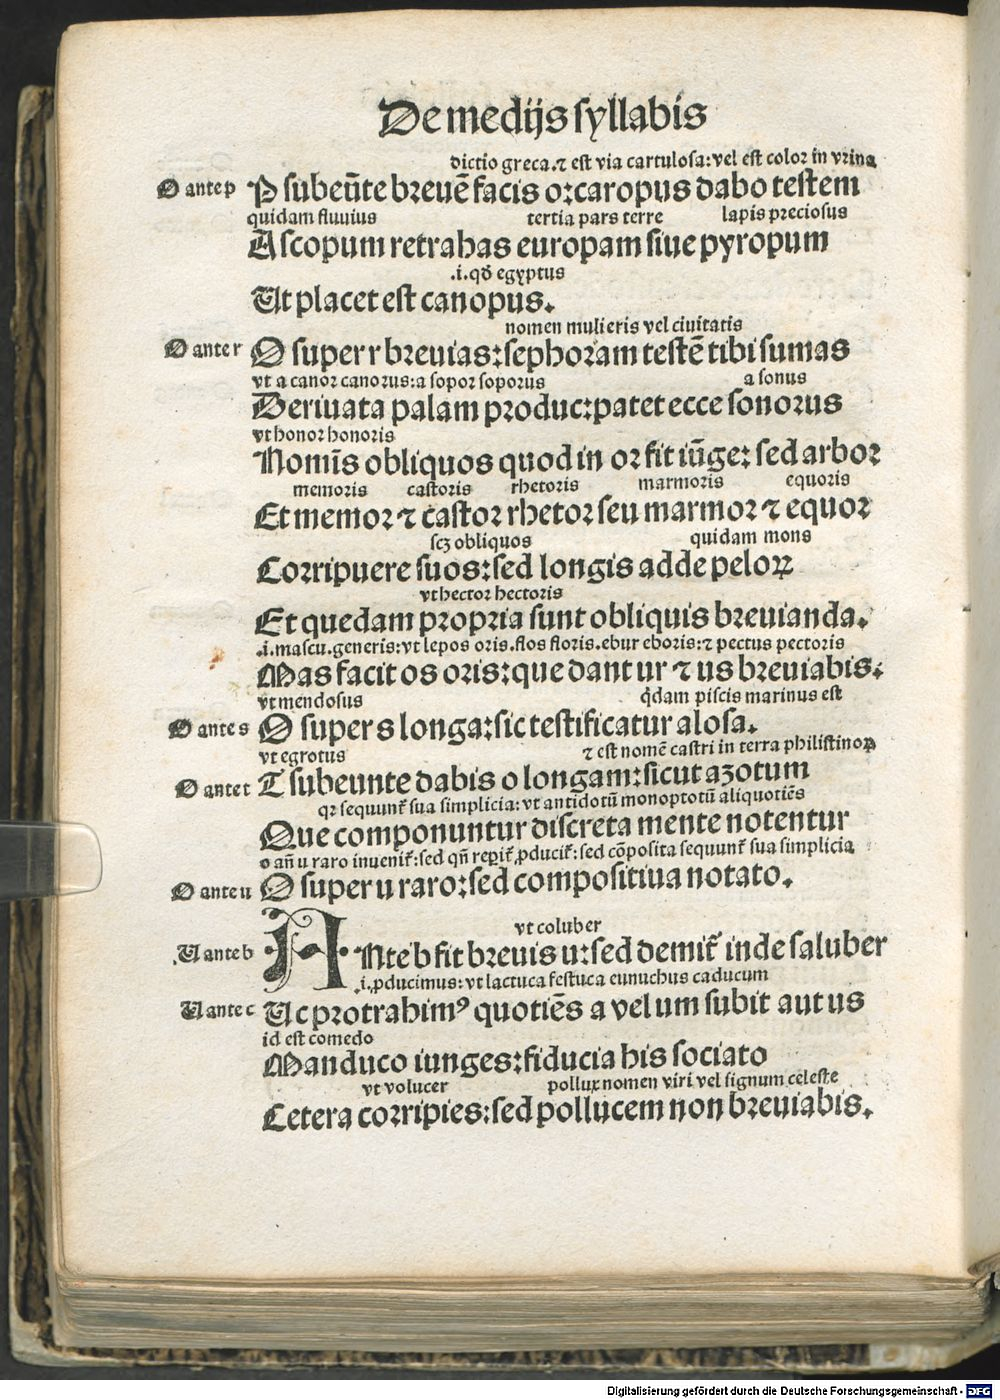 De medijs syllabis
dictio greca.⁊ est via cartulosa:vel est color in vrina
O ante p P subeūte breuē facis o:caropus dabo testem
quidam fluuius tertia pars terre lapis preciosus
Ascopum retrahas europam siue pyropum
.i.qđ egyptus
Ut placet est canopus.
nomen mulieris vel ciuitatis
O ante r O super r breuias:sephoram testē tibi sumas
vt a canor canorus:a sopor soporus a sonus
Deriuata palam produc:patet ecce sonorus
vt honor honoris
Nomīs obliquos quod in or fit iūge: sed arbor
memoris castoris rhetoris marmoris equoris
Et memor ⁊ castor rhetor seu marmor ⁊ equor
scꝫ obliquos quidam mons
Corripuere suos:sed longis adde peloꝝ
vt hector hectoris
Et quedam propria sunt obliquis breuianda.
.i.mascu.generis:vt lepos oris.flos floris.ebur eboris:⁊ pectus pectoris
Mas facit os oris:que dant ur ⁊ us breuiabis.
vt mendosus qđam piscis marinus est
O ante s O super s longa:sic testificatur alosa.
vt egrotus ⁊ est nomē castri in terra philistinoꝝ
O ante t T subeunte dabis o longam:sicut azotum
qꝛ sequunt̃ sua simplicia:vt antidotū monoptotū aliquotiēs
Que componuntur discreta mente notentur
o añ u raro inuenit̃:sed qñ reꝑit̃ ꝓducit̃:sed cōposita sequunt̃ sua simplicia
O ante u O super u raro:sed compositiua notato.
vt coluber
U ante b ANte b fit breuis u:sed demit̃ inde saluber
.i.ꝓducimus:vt lactuca festuca eunuchus caducum
U ante c Uc protrahimꝰ quotiēs a vel um subit aut us
id est comedo
Manduco iunges:fiducia his sociato
vt volucer pollux nomen viri vel signum celeste
Cetera corripies:sed pollucem non breuiabis.
Digitalisierung gefördert durch die Deutsche Forschungsgemeinschaft - DFG